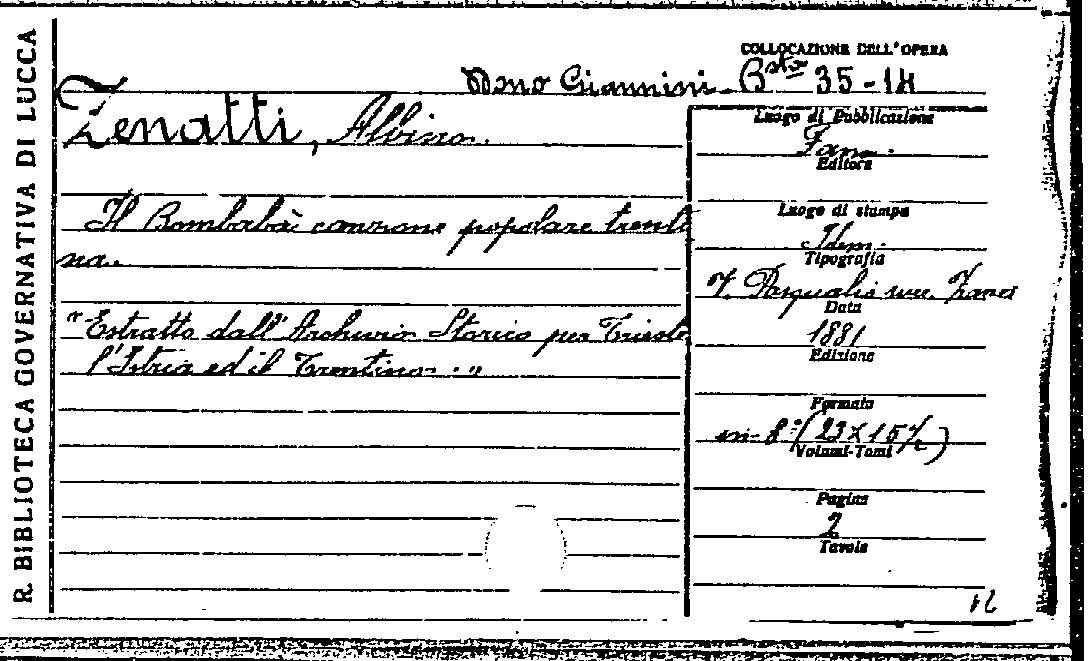 R. BIBLIOTECA GOVERNATIVA DI LUCCA
COLLOCAZIONE DELL'OPERA
Dono Giannini. Bsta 35-14
Zenatti, Albino.
Il Bombabà canzone popolare trenti
na.
"Estratto dall'Archivio Storico per Trieste
l'Istria ed il Trentino. "
Luogo di Pubblicazione
Editore
Luogo di stampa
Idem.
Tipografia
Pasqualis succ.
Data
1881
Edizione
Formato
in-8º (23X15½)
Volumi-Tomi
Pagine
2
Tavole